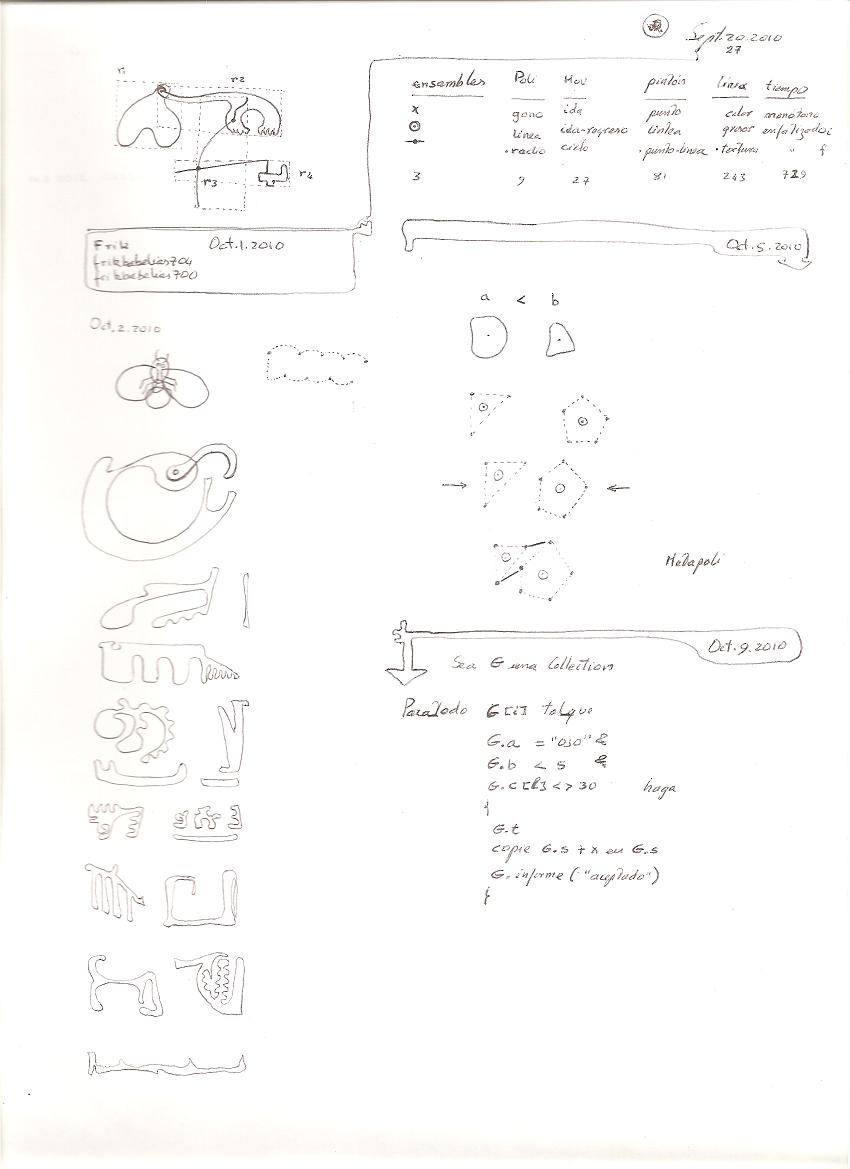 Sept.20.2010
27
r1
r2
r3
r4
ensambles Poli Mov pintón línea tiempo
x gono ida punto color monótono
línea ida-regreso línea grosor enfatizado
.radio ciclo .punto-línea .textura " f
3 9 27 81 243 729
Frik Oct.1.2010
frikbebelies704
frikbebelies700
Oct.5.2010
Oct.2.2010
a < b
Metapoli
Oct.9.2010
Sea G una Collection
Para todo G[i] talque
G.a = "oso" &
G.b < 5 &
G.c[k] <> 30 haga
{
G.t
copie G.s + x en G.s
G.informe ("aceptado")
}